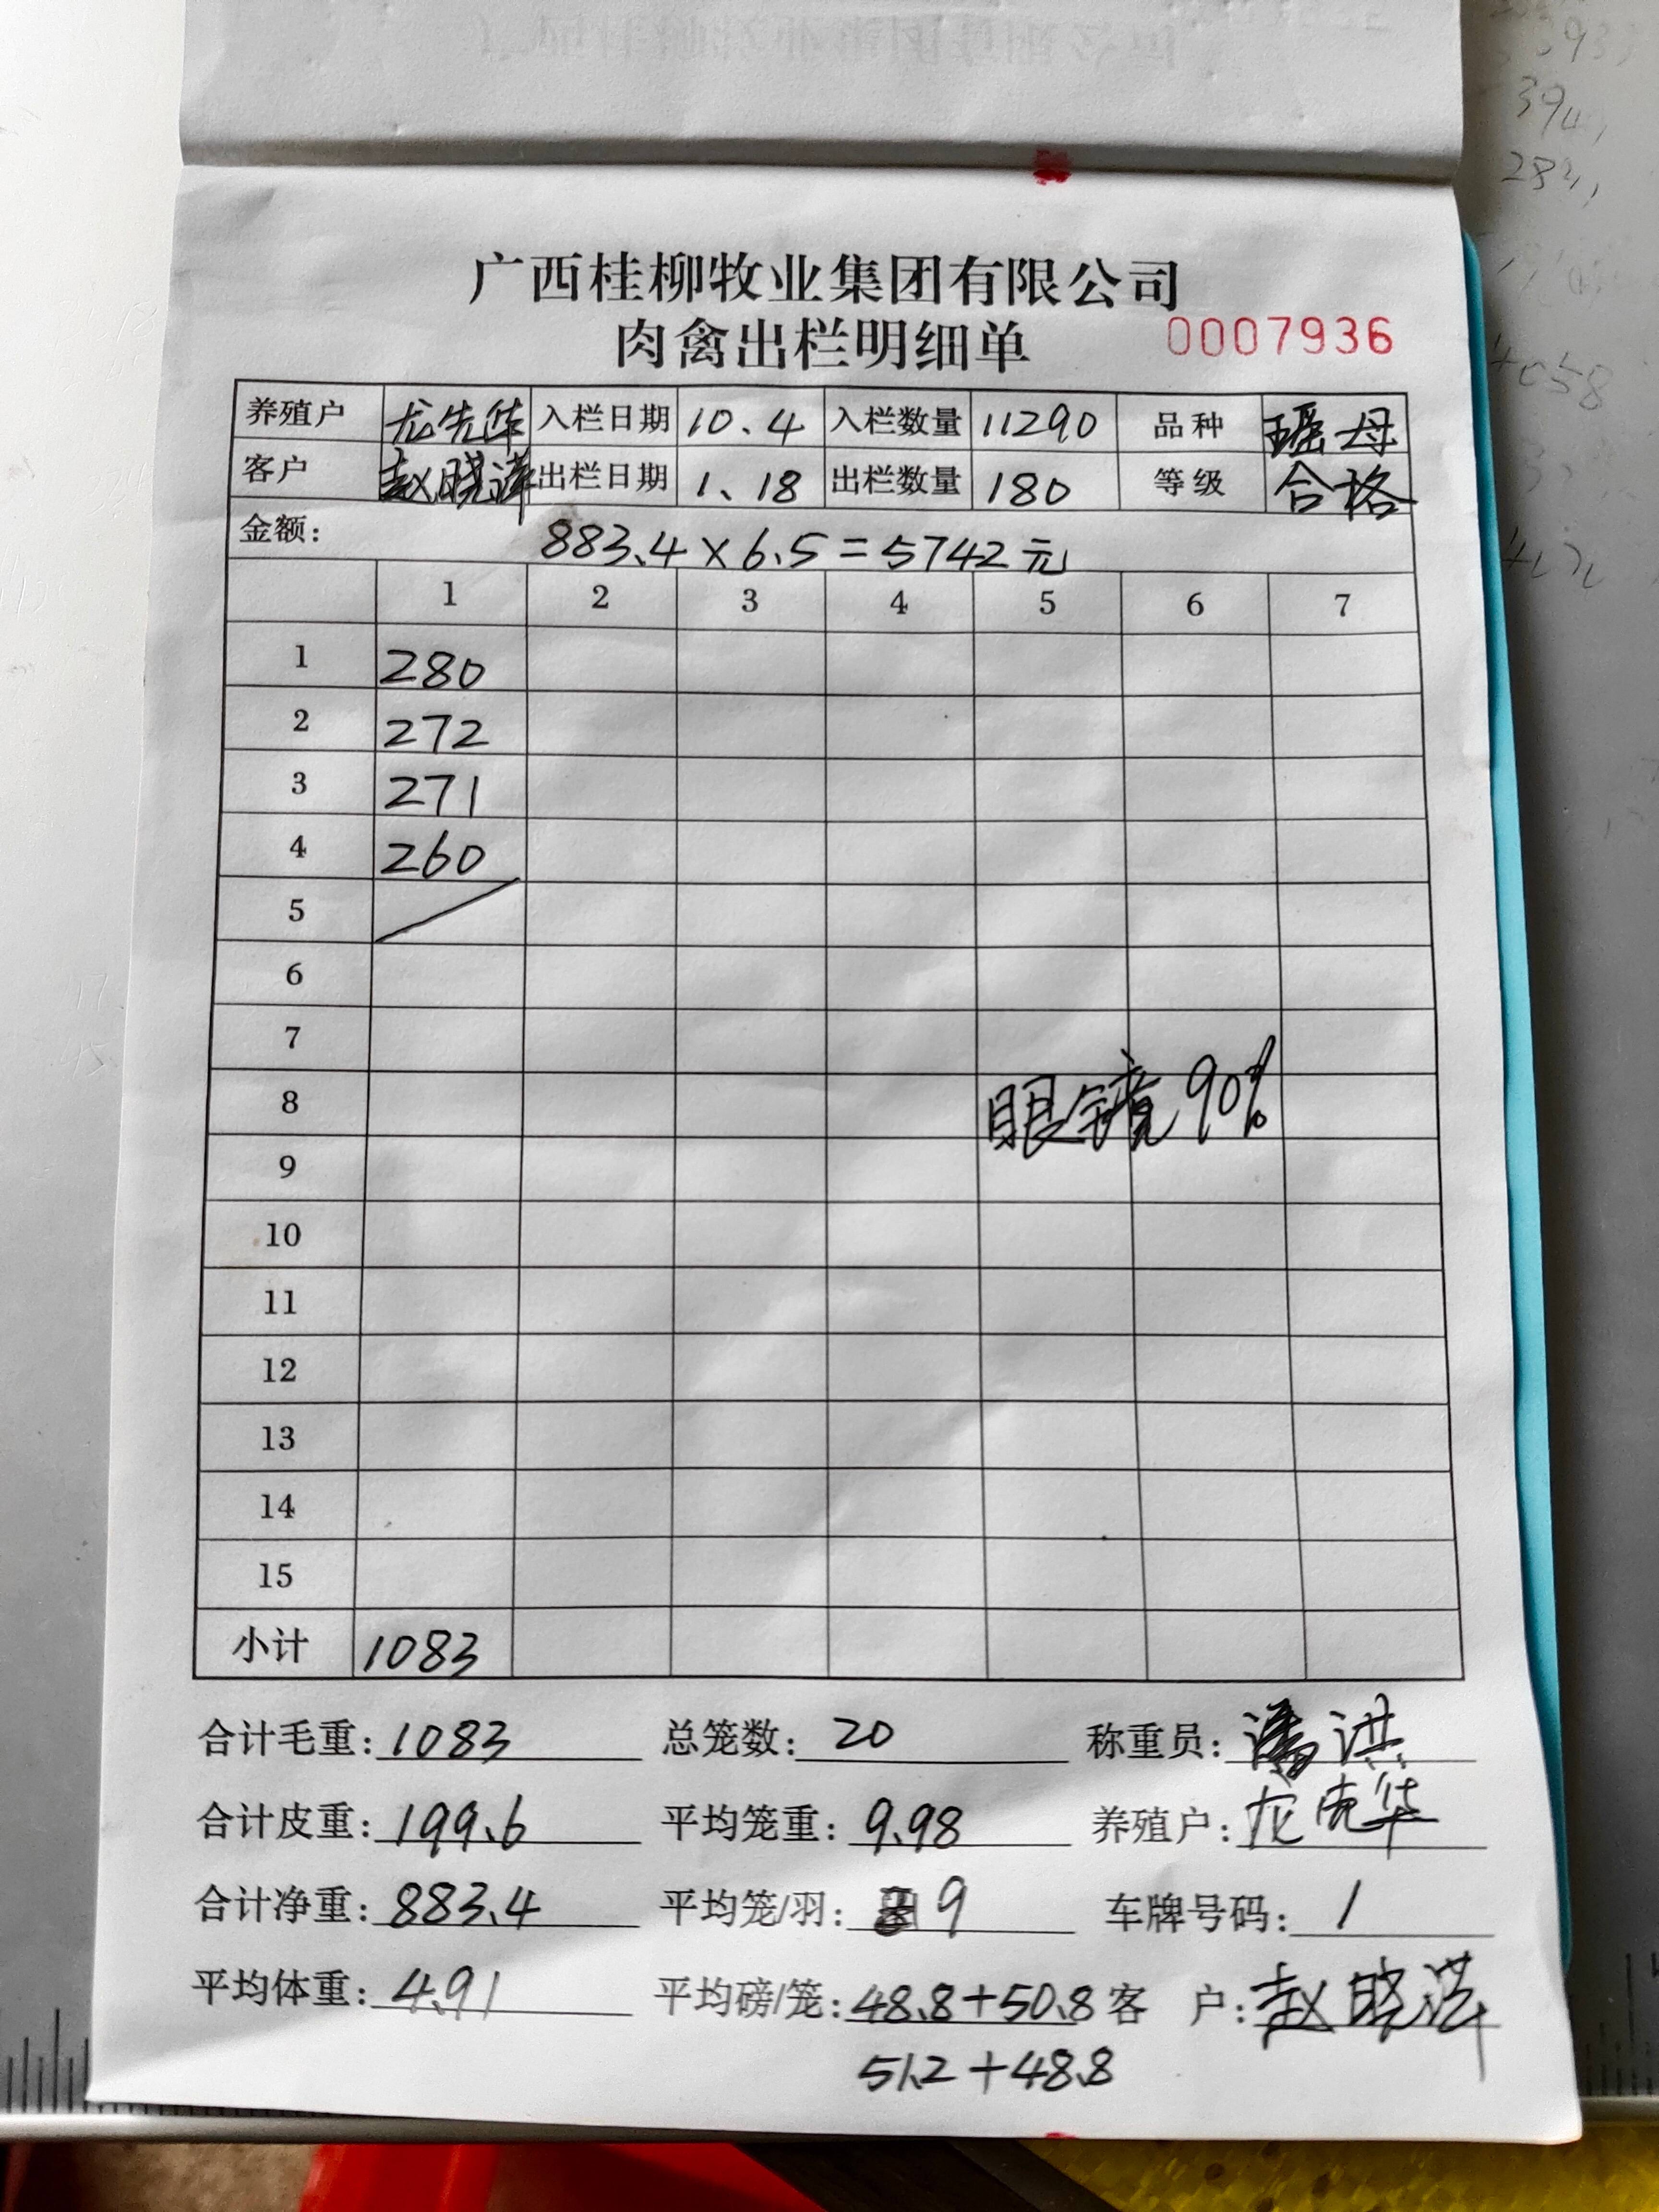 广西桂柳牧业集团有限公司
肉禽出栏明细单 0007936
养殖户 龙先华 入栏日期 10.4 入栏数量 11290 品种 瑶母
客户 赵晓 出栏日期 1.18 出栏数量 180 等级 合格
金额: 883.4×6.5=5742元
1 2 3 4 5 6 7
1 280
2 272
3 271
4 260
5
6
7
8 眼镜90%
9
10
11
12
13
14
15
小计 1083
合计毛重: 1083 总笼数: 20 称重员: 潘洪
合计皮重: 199.6 平均笼重: 9.98 养殖户: 龙先华
合计净重: 883.4 平均笼/羽: 9 车牌号码: 1
平均体重: 4.91 平均磅/笼: 48.8+50.8 客 户: 赵晓
51.2+48.8